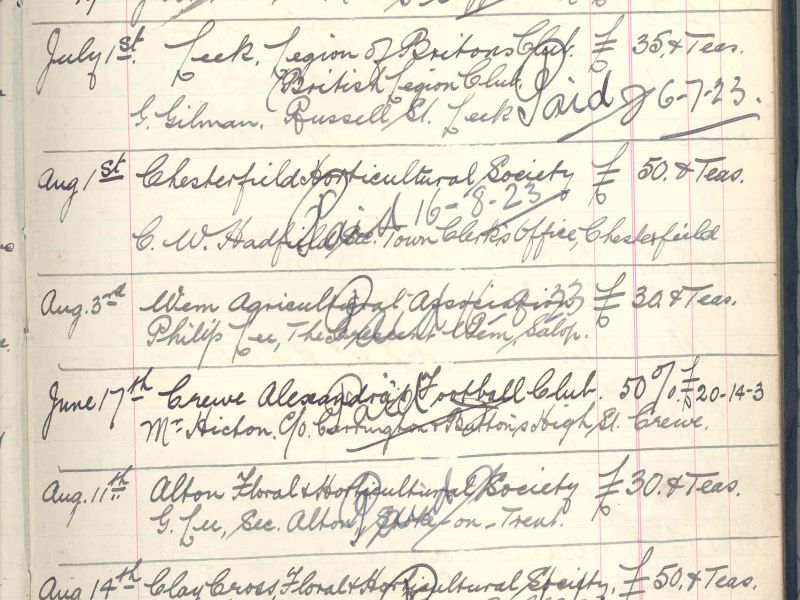 July 1st. Leek. Legion of Britons Club. £ 35. & Teas.
(British Legion Club.
G. Gilman. Russell St. Leek Paid 6-7-23.
Aug 1st Chesterfield Horticultural Society £ 50. & Teas.
Paid 16-8-23
C. W. Hadfield Sec. Town Clerk's Office, Chesterfield
Aug. 3rd Wem Agricultural Association £ 30. & Teas.
Philip Lee, The Crescent Wem, Salop.
June 17th Crewe Alexandra's Football Club. 50%. £20-14-3
Paid
Mr Hicton. C/o. Carrington & Button's High St. Crewe.
Aug. 11th Alton Floral & Horticultural Society £ 30. & Teas.
Paid
G. Lee, Sec. Alton, Stoke-on-Trent.
Aug 14th Clay Cross, Floral & Horticultural Society. £ 50. & Teas.